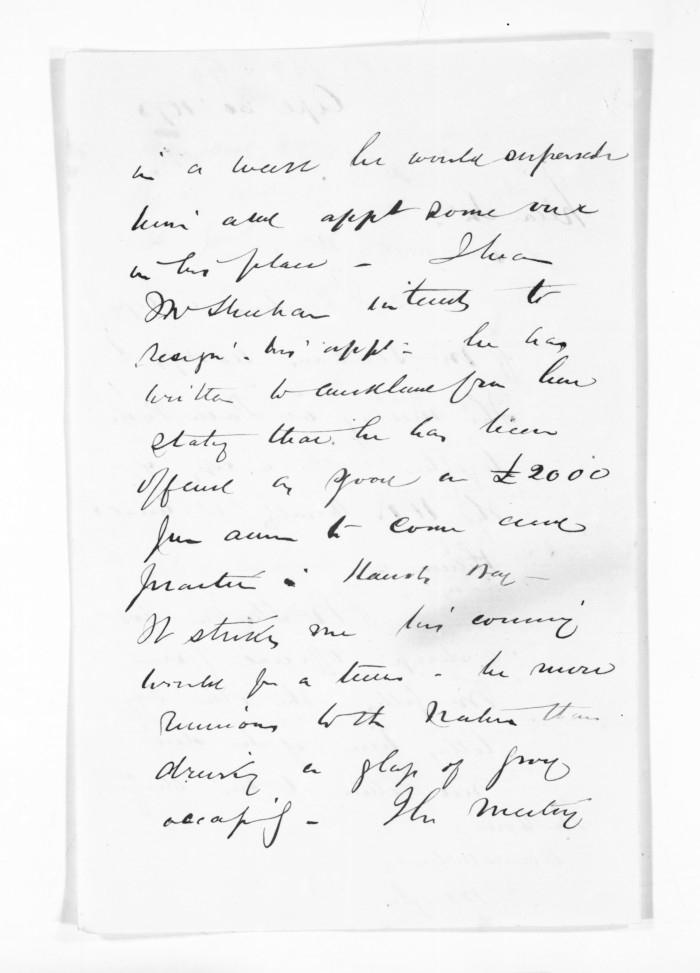 in a week he would supersede
him and appt some one
in his place - I hear
Mr Sheehan intends to
resign his appt - he has
written to Auckland from here
stating that he has been
offered as good as £2000
per annum to come and
practice in Hawke's Bay -
It strikes me his coming
would for a time - be more
ruinous to the Natives than
drinking a glass of grog
occasionally - The meeting